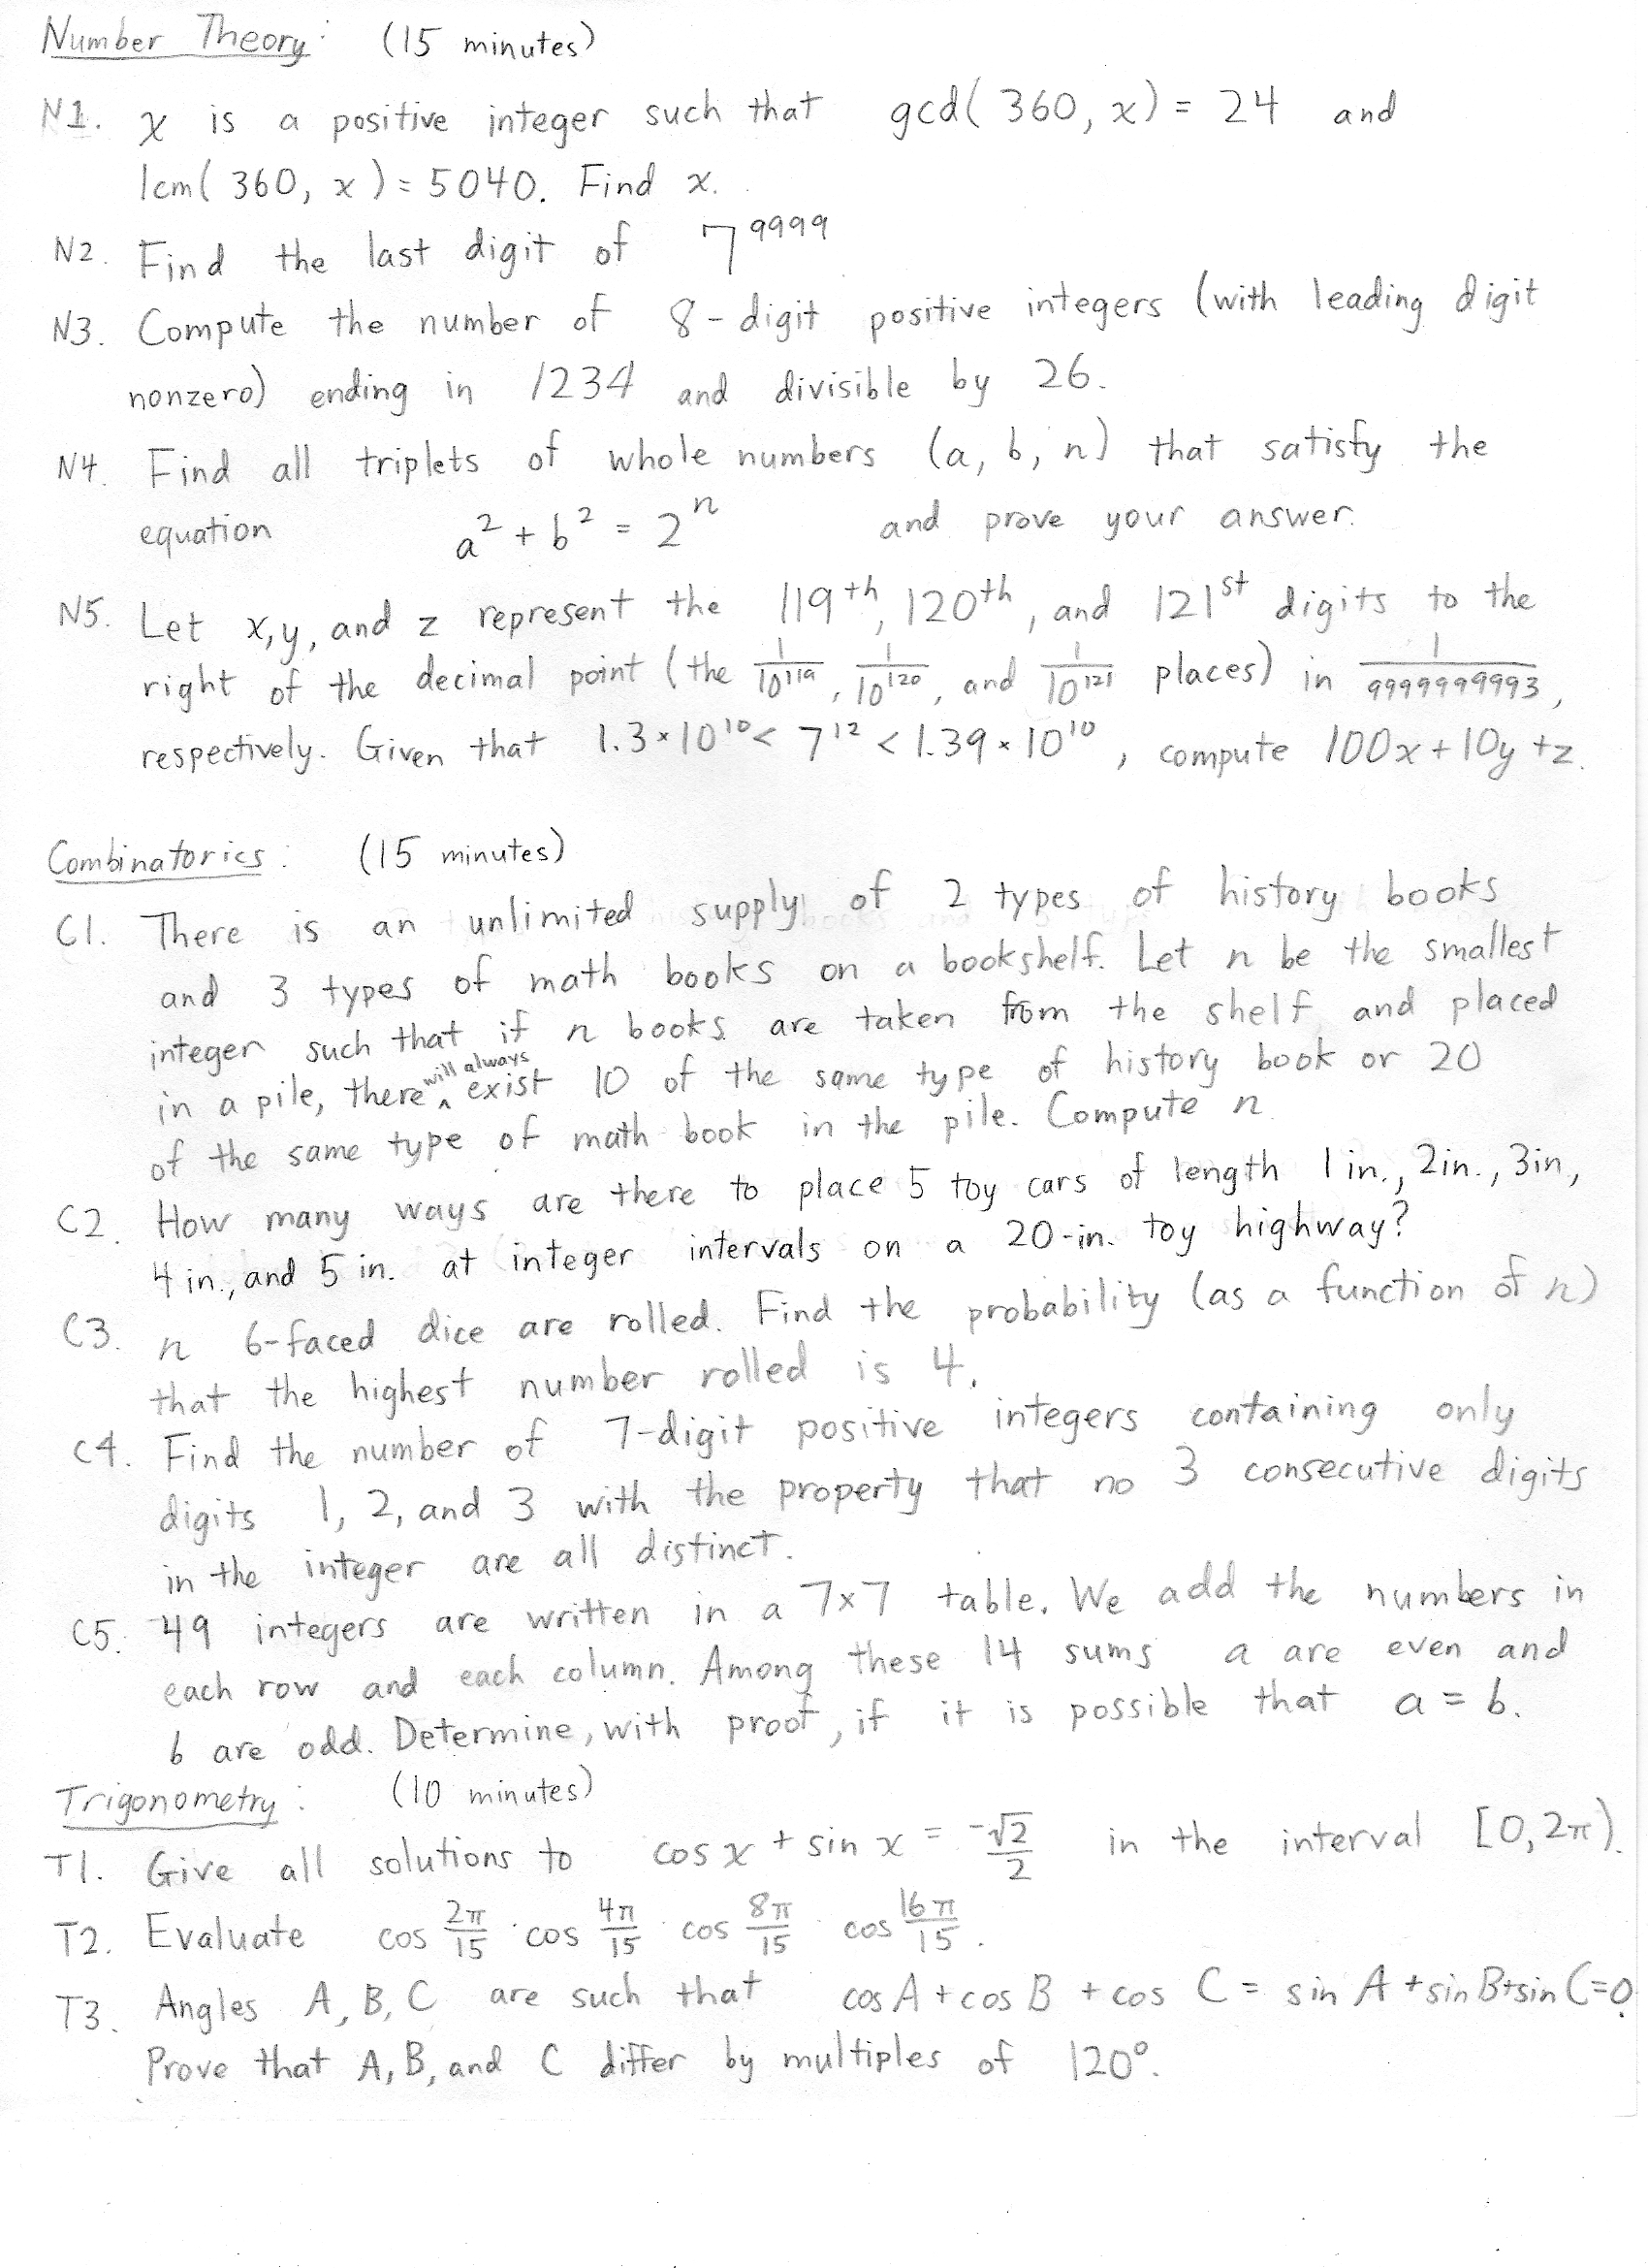 Number Theory: (15 minutes)
N1. x is a positive integer such that gcd(360, x) = 24 and
lcm(360, x) = 5040. Find x.
N2. Find the last digit of 7^9999
N3. Compute the number of 8-digit positive integers (with leading digit
nonzero) ending in 1234 and divisible by 26.
N4. Find all triplets of whole numbers (a, b, n) that satisfy the
equation a² + b² = 2ⁿ and prove your answer.
N5. Let x, y, and z represent the 119th, 120th, and 121st digits to the
right of the decimal point (the 1/10^119, 1/10^120, and 1/10^121 places) in 1/9999999993,
respectively. Given that 1.3 × 10^10 < 7^12 < 1.39 × 10^10, compute 100x + 10y + z.
Combinatorics: (15 minutes)
C1. There is an unlimited supply of 2 types of history books
and 3 types of math books on a bookshelf. Let n be the smallest
integer such that if n books are taken from the shelf and placed
in a pile, there will always exist 10 of the same type of history book or 20
of the same type of math book in the pile. Compute n.
C2. How many ways are there to place 5 toy cars of length 1 in., 2in., 3in,
4 in., and 5 in. at integer intervals on a 20-in. toy highway?
C3. n 6-faced dice are rolled. Find the probability (as a function of n)
that the highest number rolled is 4.
C4. Find the number of 7-digit positive integers containing only
digits 1, 2, and 3 with the property that no 3 consecutive digits
in the integer are all distinct.
C5. 49 integers are written in a 7×7 table. We add the numbers in
each row and each column. Among these 14 sums a are even and
b are odd. Determine, with proof, if it is possible that a = b.
Trigonometry: (10 minutes)
T1. Give all solutions to cos x + sin x = -√2/2 in the interval [0, 2π).
T2. Evaluate cos 2π/15 · cos 4π/15 · cos 8π/15 · cos 16π/15.
T3. Angles A, B, C are such that cos A + cos B + cos C = sin A + sin B + sin C = 0.
Prove that A, B, and C differ by multiples of 120°.